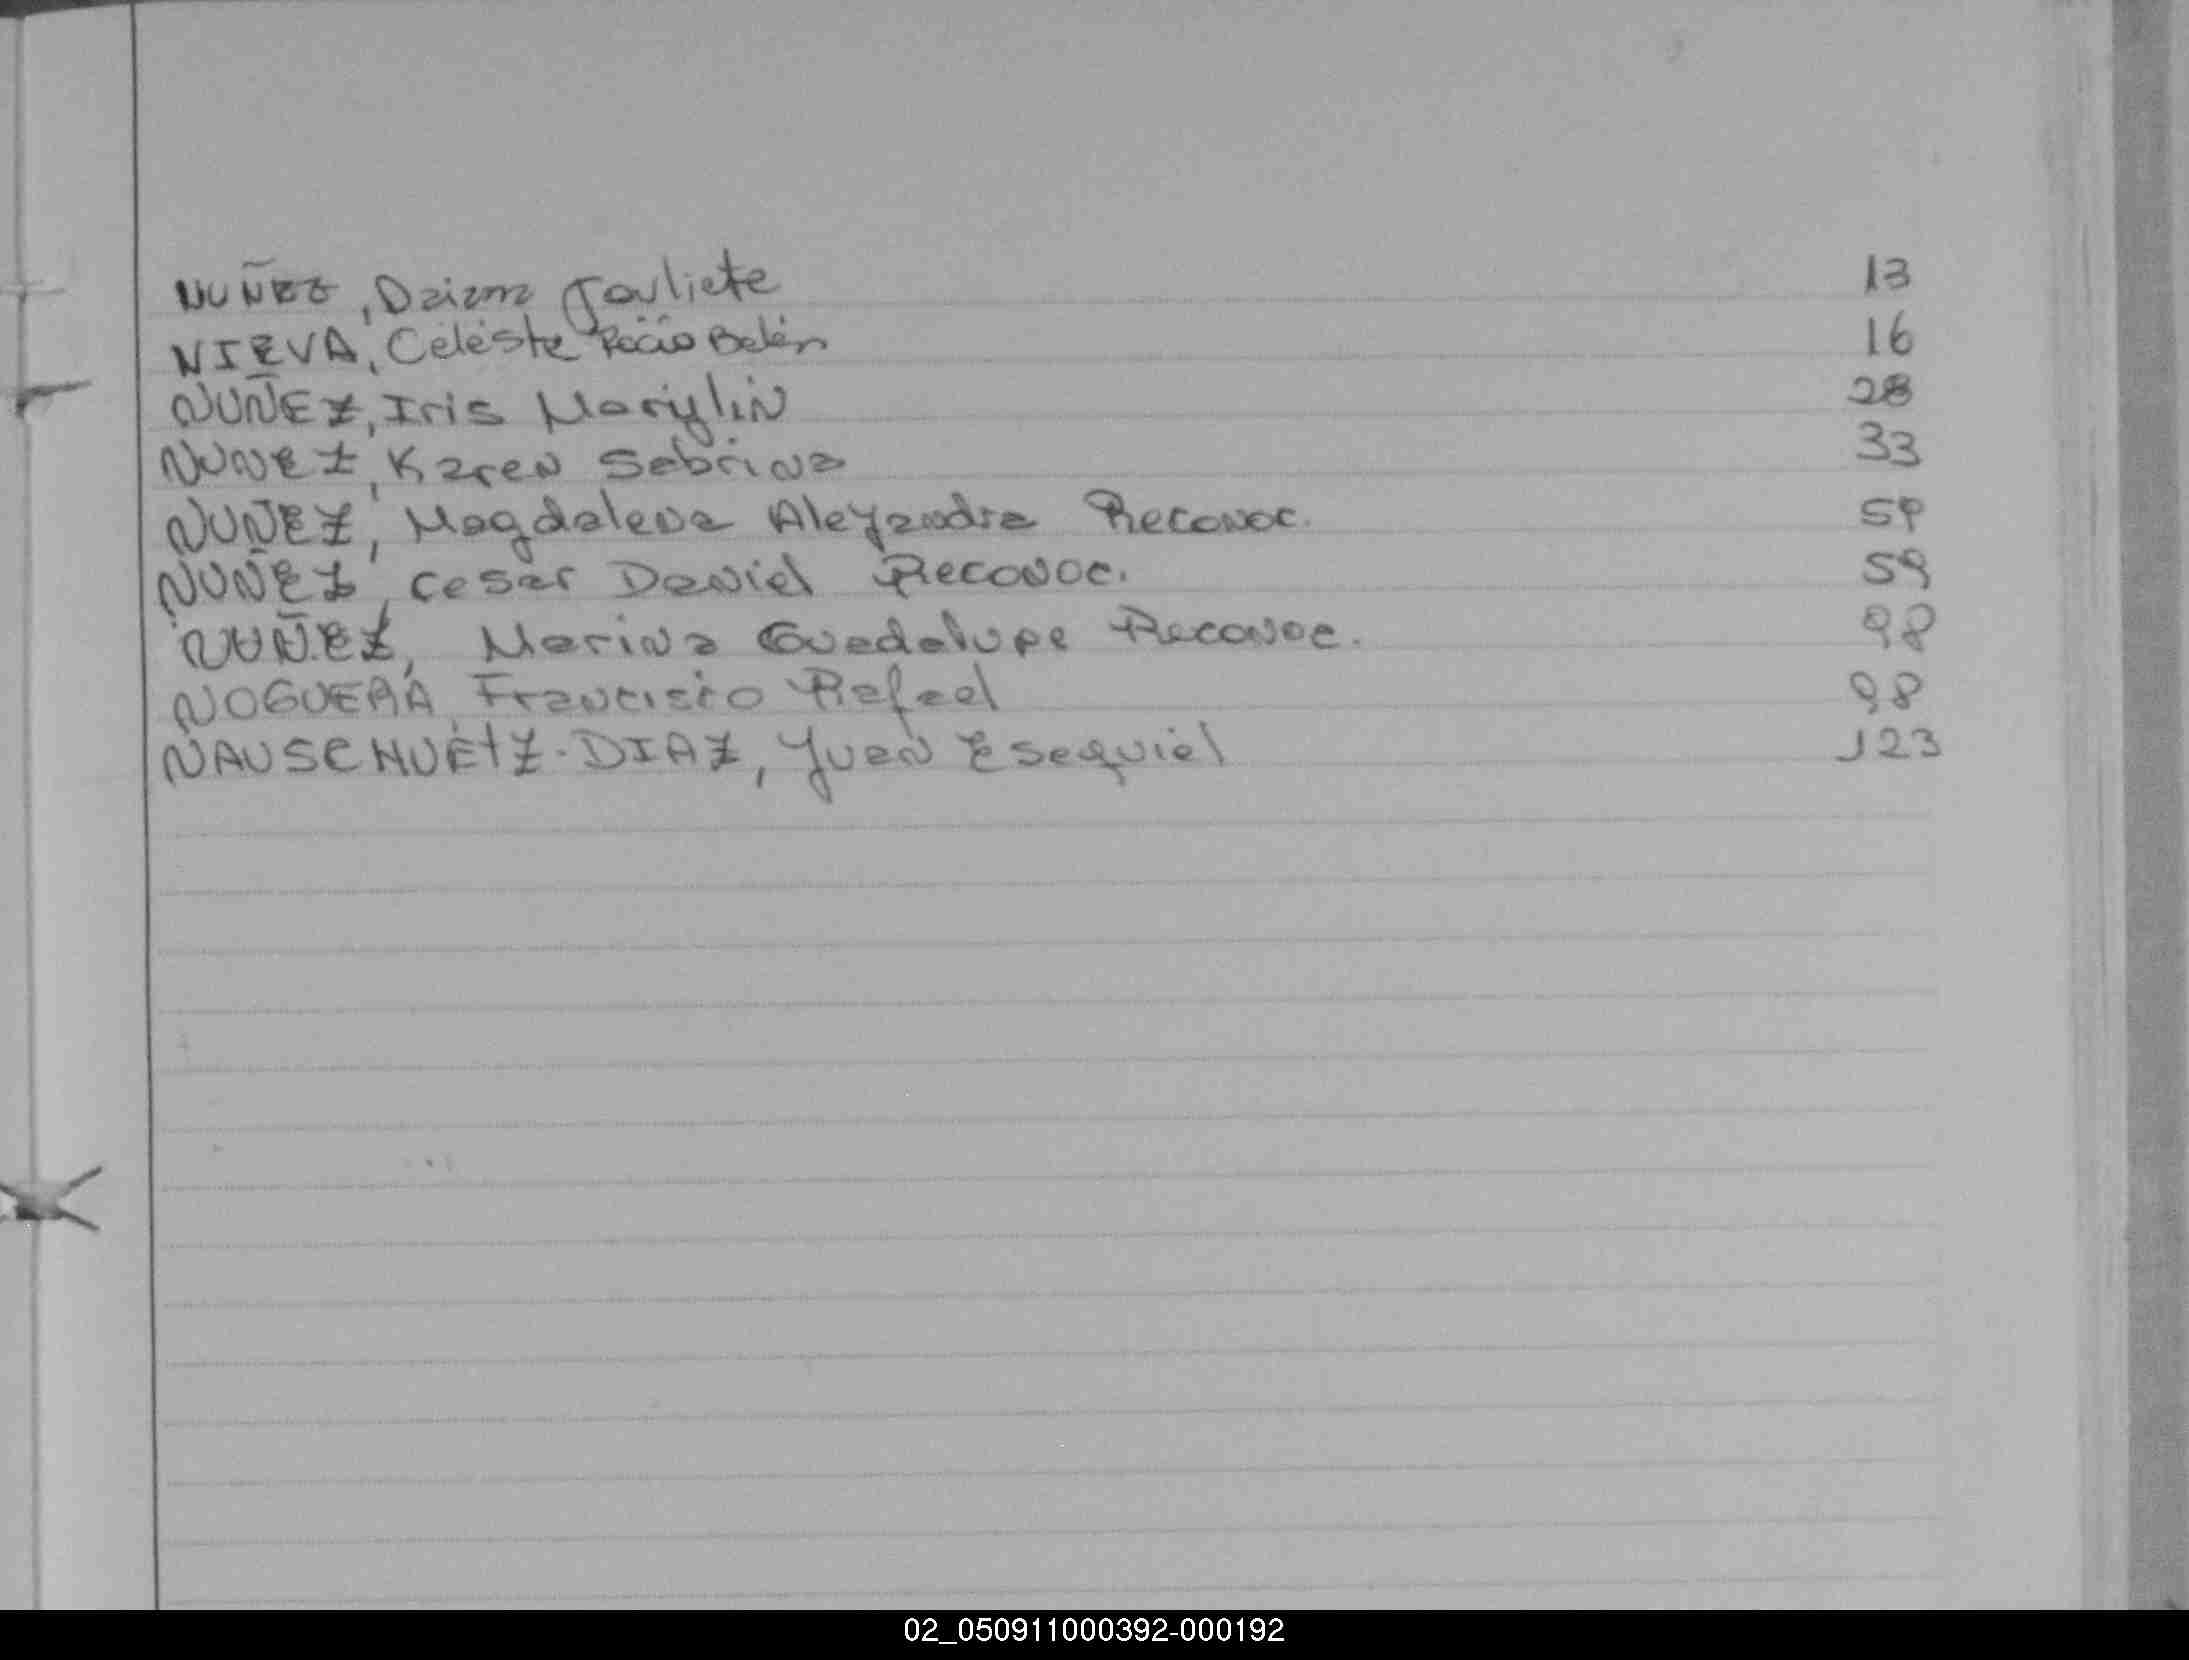 NUÑEZ, Daiana Jouliete 13
NIEVA, Celeste Rocio Belén 16
NUÑEZ, Iris Marylin 28
NUNEZ, Karen Sabrina 33
NUÑEZ, Magdalena Aleyandra Reconoc. 59
NUÑEZ, Cesar Daniel Reconoc. 59
NUÑEZ, Marina Guadalupe Reconoc. 98
NOGUERA, Francisco Rafael 98
NAUSCHUETZ-DIAZ, Yuan Esequiel 123
02_050911000392-000192